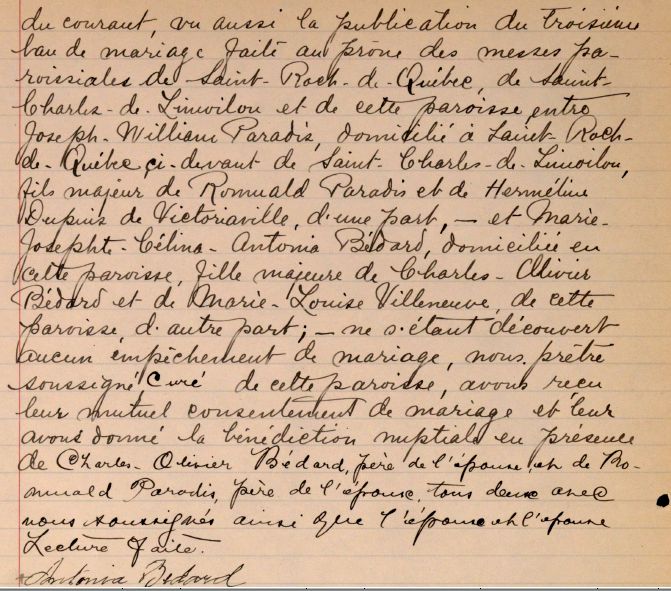 du courant, vu aussi la publication du troisième
ban de mariage faite au prône des messes pa-
roissiales de Saint-Roch-de-Québec, de Saint-
Charles-de-Limoilou et de cette paroisse entre
Joseph-William Paradis, domicilié à Saint-Roch-
de-Québec ci-devant de Saint-Charles-de-Limoilou,
fils majeur de Romuald Paradis et de Herméline
Dupuis de Victoriaville, d'une part, — et Marie-
Josephte-Célina-Antonia Bédard, domiciliée en
cette paroisse, fille majeure de Charles-Olivier
Bédard et de Marie-Louise Villeneuve, de cette
paroisse, d'autre part; — ne s'étant découvert
aucun empêchement de mariage, nous, prêtre
soussigné Curé de cette paroisse, avons reçu
leur mutuel consentement de mariage et leur
avons donné la bénédiction nuptiale en présence
de Charles-Olivier Bédard, père de l'épouse, et de Ro-
muald Paradis, père de l'épouse, tous deux avec
nous soussignés ainsi que l'épouse et l'épouse
Lecture faite.
Antonia Bédard